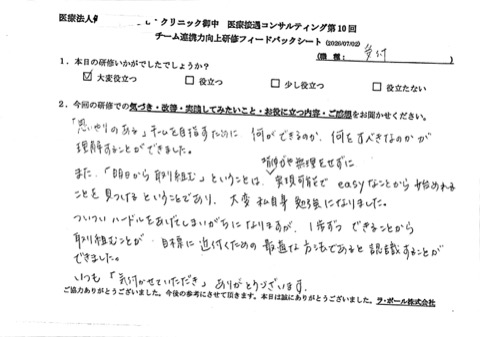 医療法人 クリニック御中　医療接遇コンサルティング第10回
チーム連携力向上研修フィードバックシート (2026/07/02)
（職種：受付）
1．本日の研修いかがでしたでしょうか？
☑ 大変役立つ　□ 役立つ　□ 少し役立つ　□ 役立たない
2．今回の研修での気づき・改善・実践してみたいこと・お役に立つ内容・ご感想をお聞かせください。
「思いやりのある」チームを目指すために 何ができるのか、何をすべきなのかが
理解することができました。
また、「明日から取り組む」ということは、背伸びや無理をせずに 実現可能で easyなことから 始められる
ことを 見つけるということであり、大変 私自身 勉強になりました。
ついつい ハードルをあげてしまいがちになりますが、1歩ずつ できることから
取り組むことが 目標に 近付くための 最適な方法であると 認識することが
できました。
いつも「気付かせていただき」ありがとうございます。
ご協力ありがとうございました。今後の参考にさせて頂きます。本日は誠にありがとうございました。ラ・ポール株式会社